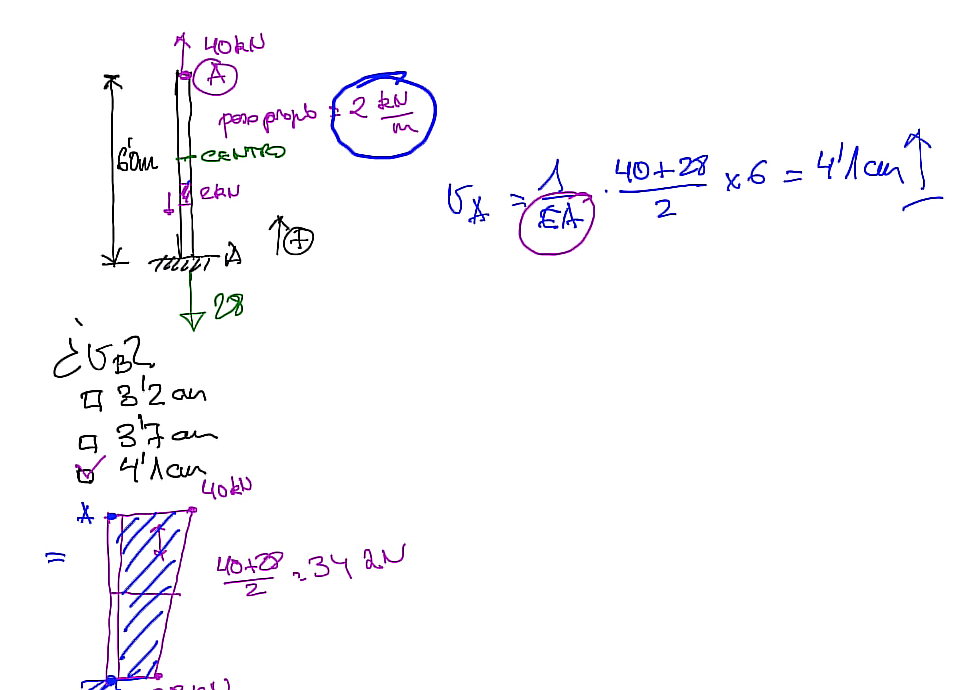 40kN
A
peso propio = 2 kN/m
6'0m
CENTRO
2kN
+
A
28
v_A = 1/EA · (40+28)/2 x 6 = 4'1cm ↑
¿v_B?
3'2 cm
3'7 cm
4'1cm
40kN
A
=
(40+28)/2 = 34 kN